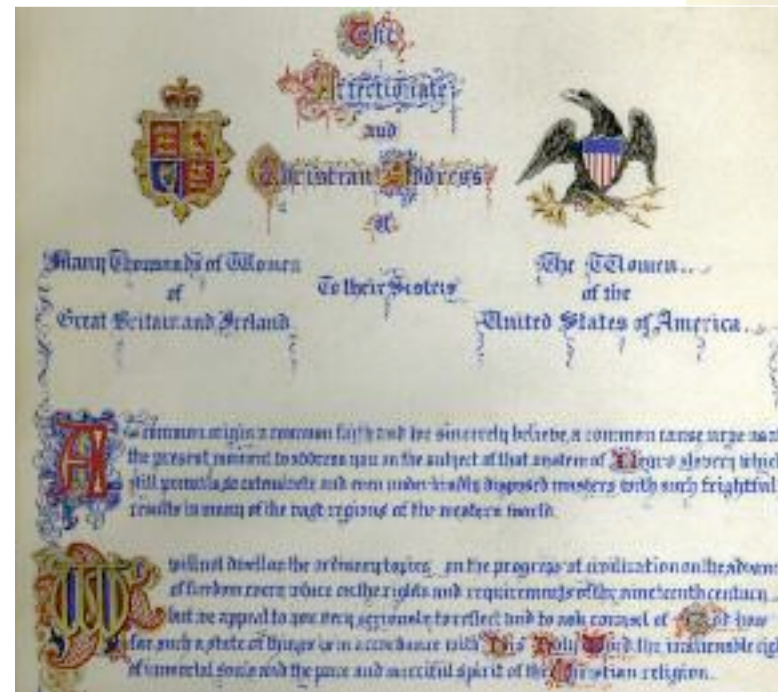 The
Affectionate
and
Christian Address
of
Many Thousands of Women
of
Great Britain and Ireland
To their Sisters
The Women
of the
United States of America
A common origin, a common faith and we sincerely believe, a common cause urge us at
the present moment to address you on the subject of that system of Negro slavery which
still prevails so extensively and even under kindly disposed masters with such frightful
results in many of the vast regions of the western world.
We will not dwell on the ordinary topics on the progress of civilization on the advance
of freedom every where on the rights and requirements of the nineteenth century
but we appeal to you very seriously to reflect and to ask counsel of God how
far such a state of things is in accordance with His Holy Word the inalienable rig
of immortal souls and the pure and merciful spirit of the Christian religion.